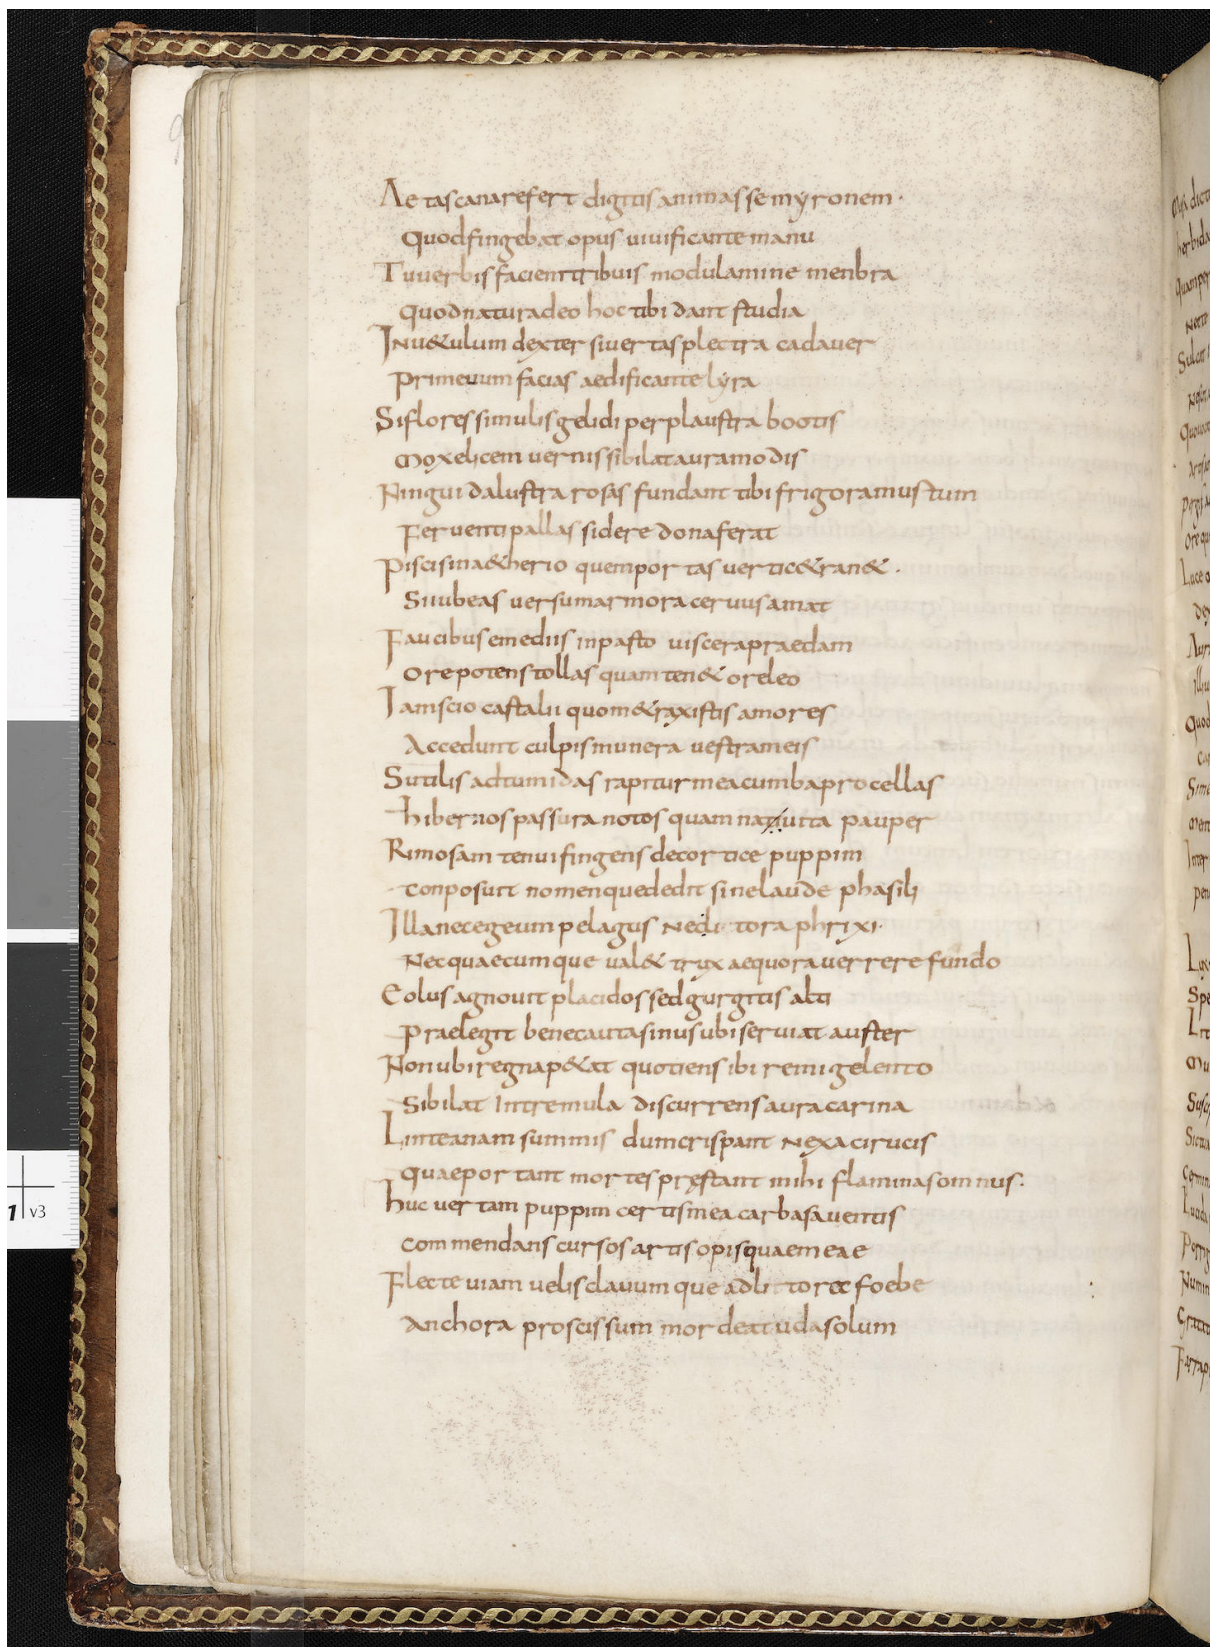 Aetas canarefert digitis animasse myronem·
Quodfingebat opus uiuificante manu
Tu uerbis facienti tribuis modulamine menbra
Quodnaturadeo hoc tibi dant studia
Inu&ulum dexter siuertas plectra cadauer
Primeuum facias aedificante lyra
Siflores simulis gelidi per plaustra bootis
Mox elicem uernis sibilat auramodis
Ninguida lustra rosas fundant tibi frigora mustum
Feruenti pallas sidere dona ferat
Piscis ina&herio quem portas uertic&ran&·
Si iubeas uersu marmora ceruus amat
Faucibus emediis inpasto uiscera praedam
Ore potens tollas quam ten& ore leo
Iam scio castalii quom&raxistis amores
Accedunt culpis munera uestra meis
Sutilis ad tumidas rapitur mea cumba procellas
hibernos passura notos quam nauita pauper
Rimosam tenui fingens decortice puppim
conposuit nomenquededit sinelaude phasili
Illa nec egeum pelagus nec litora phrixi·
Nec quaecumque ual& trux aequora uerrere fundo
Eolus agnouit placidos sed gurgitis alti
praelegit bene cauta sinus ubi seruiat auster
Non ubi regna p&at quotiens ibi remige lento
Sibilat Intremula discurrens aura carina
Lintea nam summis dum crispant nexa cirucis
quae portant mortes pręstant mihi flamina somnus·
huc uertam puppim certis mea carbasa uentis
commendans cursos artis opis quaemeae
Flecte uiam uelis clauumque ad litore c foebe
Anchora proscissum mordeat uda solum
v3